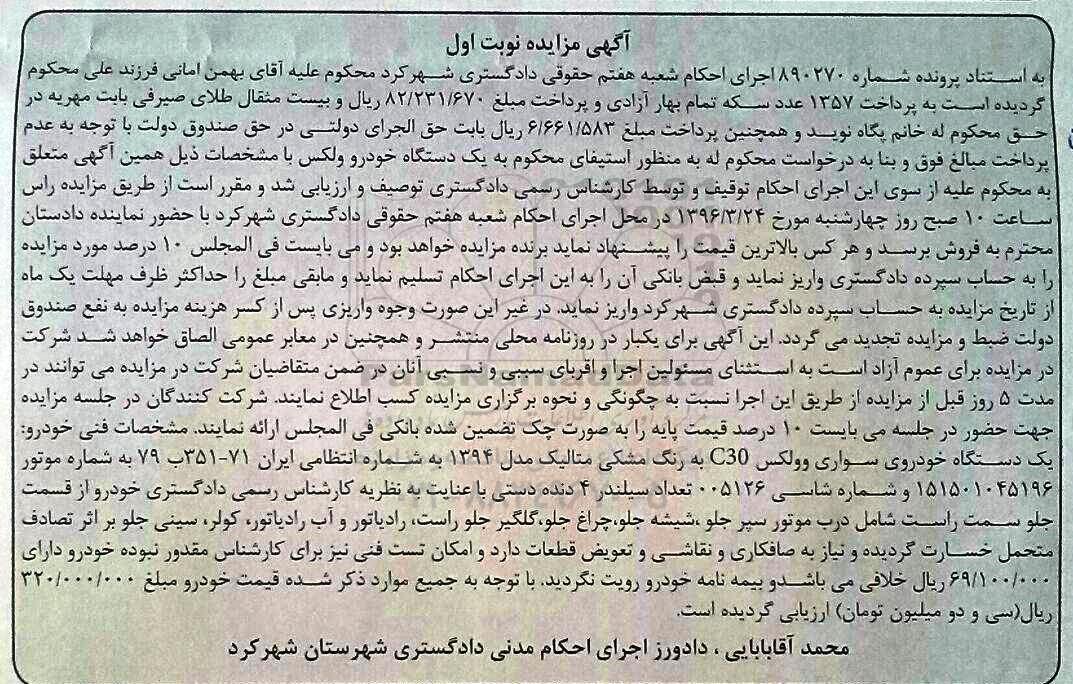 آگهی مزایده نوبت اول
به استناد پرونده شماره ۸۹۰۲۷۰ اجرای احکام شعبه هفتم حقوقی دادگستری شهرکرد محکوم علیه آقای بهمن امانی فرزند علی محکوم
گردیده است به پرداخت ۱۳۵۷ عدد سکه تمام بهار آزادی و پرداخت مبلغ ۸۲/۲۳۱/۶۷۰ ریال و بیست مثقال طلای صیرفی بابت مهریه در
حق محکوم له خانم پگاه نوید و همچنین پرداخت مبلغ ۶/۶۶۱/۵۸۳ ریال بابت حق الجرای دولتی در حق صندوق دولت با توجه به عدم
پرداخت مبالغ فوق و بنا به درخواست محکوم له به منظور استیفای محکوم به یک دستگاه خودرو ولکس با مشخصات ذیل همین آگهی متعلق
به محکوم علیه از سوی این اجرای احکام توقیف و توسط کارشناس رسمی دادگستری توصیف و ارزیابی شد و مقرر است از طریق مزایده راس
ساعت ۱۰ صبح روز چهارشنبه مورخ ۱۳۹۶/۳/۲۴ در محل اجرای احکام شعبه هفتم حقوقی دادگستری شهرکرد با حضور نماینده دادستان
محترم به فروش برسد و هر کس بالاترین قیمت را پیشنهاد نماید برنده مزایده خواهد بود و می بایست فی المجلس ۱۰ درصد مورد مزایده
را به حساب سپرده دادگستری واریز نماید و قبض بانکی آن را به این اجرای احکام تسلیم نماید و مابقی مبلغ را حداکثر ظرف مهلت یک ماه
از تاریخ مزایده به حساب سپرده دادگستری شهرکرد واریز نماید. در غیر این صورت وجوه واریزی پس از کسر هزینه مزایده به نفع صندوق
دولت ضبط و مزایده تجدید می گردد. این آگهی برای یکبار در روزنامه محلی منتشر و همچنین در معابر عمومی الصاق خواهد شد شرکت
در مزایده برای عموم آزاد است به استثنای مسئولین اجرا و اقربای سببی و نسبی آنان در ضمن متقاضیان شرکت در مزایده می توانند در
مدت ۵ روز قبل از مزایده از طریق این اجرا نسبت به چگونگی و نحوه برگزاری مزایده کسب اطلاع نمایند. شرکت کنندگان در جلسه مزایده
جهت حضور در جلسه می بایست ۱۰ درصد قیمت پایه را به صورت چک تضمین شده بانکی فی المجلس ارائه نمایند. مشخصات فنی خودرو:
یک دستگاه خودروی سواری وولکس C30 به رنگ مشکی متالیک مدل ۱۳۹۴ به شماره انتظامی ایران ۷۱-۳۵۱ب ۷۹ به شماره موتور
۱۵۱۵۰۱۰۴۵۱۹۶ و شماره شاسی ۰۰۵۱۲۶ تعداد سیلندر ۴ دنده دستی با عنایت به نظریه کارشناس رسمی دادگستری خودرو از قسمت
جلو سمت راست شامل درب موتور سپر جلو ،شیشه جلو،چراغ جلو،گلگیر جلو راست، رادیاتور و آب رادیاتور، کولر، سینی جلو بر اثر تصادف
متحمل خسارت گردیده و نیاز به صافکاری و نقاشی و تعویض قطعات دارد و امکان تست فنی نیز برای کارشناس مقدور نبوده خودرو دارای
۶۹/۱۰۰/۰۰۰ ریال خلافی می باشدو بیمه نامه خودرو رویت نگردید. با توجه به جمیع موارد ذکر شده قیمت خودرو مبلغ ۳۲۰/۰۰۰/۰۰۰
ریال(سی و دو میلیون تومان) ارزیابی گردیده است.
محمد آقابابایی ، دادورز اجرای احکام مدنی دادگستری شهرستان شهرکرد
ParsNamadData